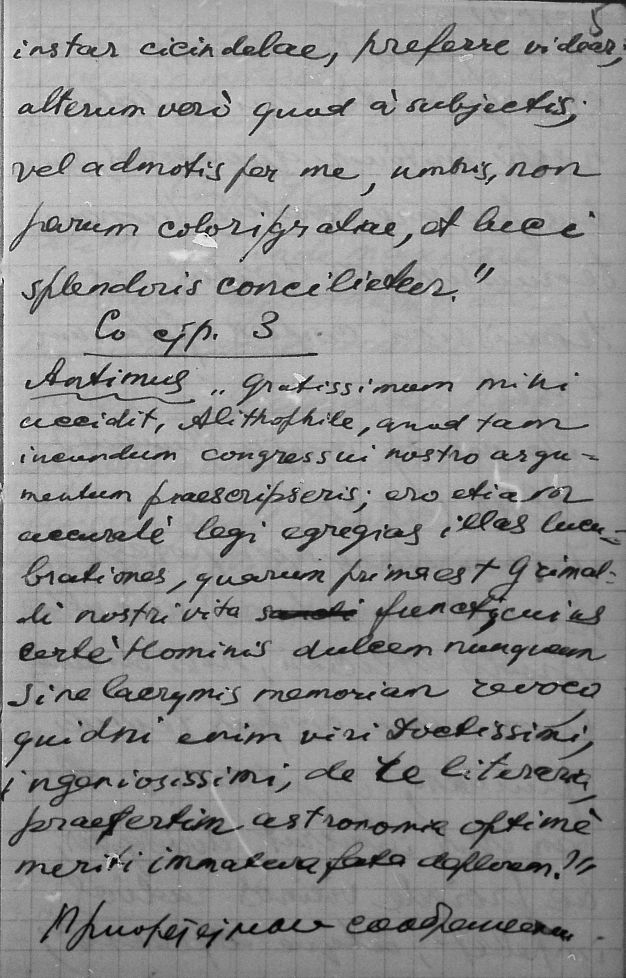 5
instar cicindelae, preferre videar;
alterum verò quod à subjectis,
vel admotis per me, umbris, non
parum colori gratiae, et luci
splendoris concilietur."
Со стр. 3
Antimus „Gratissimum mihi
accidit, Alithophile, quod tam
iucundum congressui nostro argu-
mentum praescripseris; ero etiam
accuratè legi egregias illas lucu-
brationes, quarum prima est Grimal-
di nostri vita functi, cuius
certè Hominis dulcem nunquam
sine lacrymis memoriam revoco,
quidni enim viri doctissimi,
ingeniosissimi, de te literaria,
praesertim astronomia optimè
meriti immatura fata deflerem?"